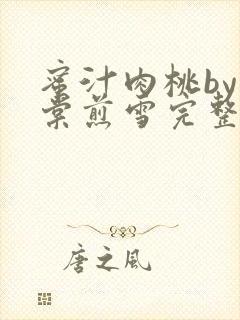 蜜汁肉桃by
棠煎雪完整
唐之风